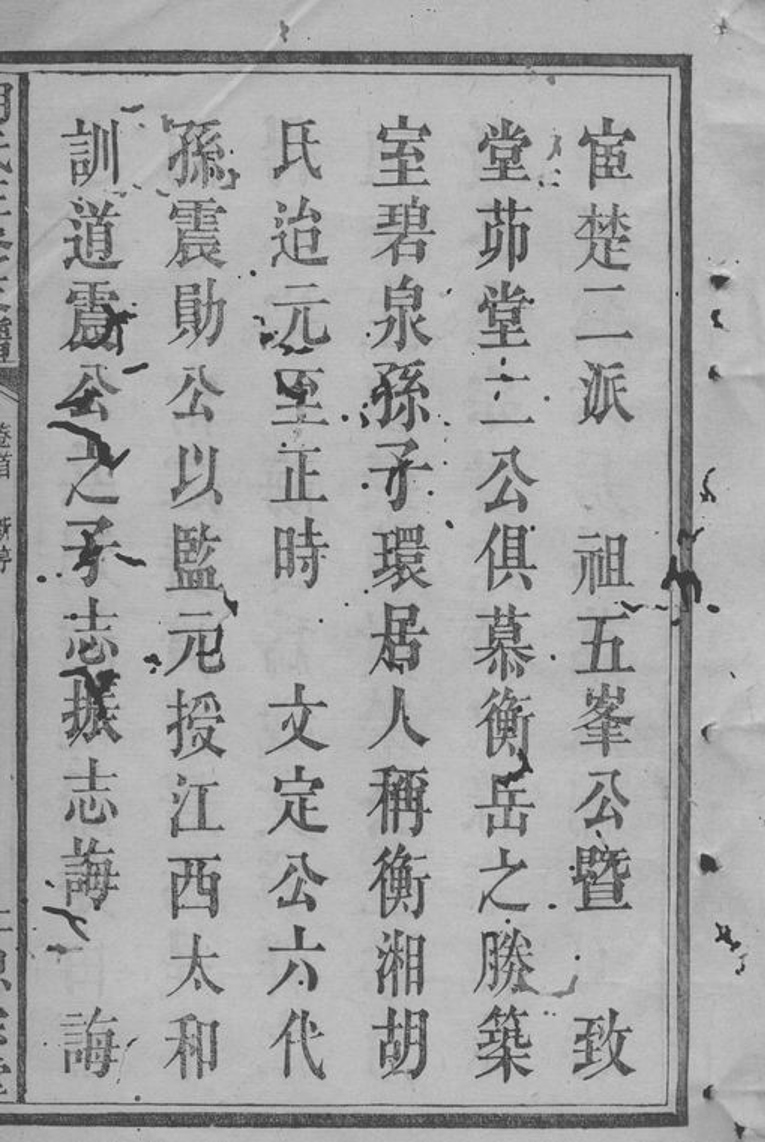 宦楚二派　祖五峯公暨　致
堂茆堂二公俱慕衡岳之勝築
室碧泉孫子環居人稱衡湘胡
氏迨元至正時　文定公六代
孫震勛公以監元授江西太和
訓道震公之子志振志誨　誨
卷首